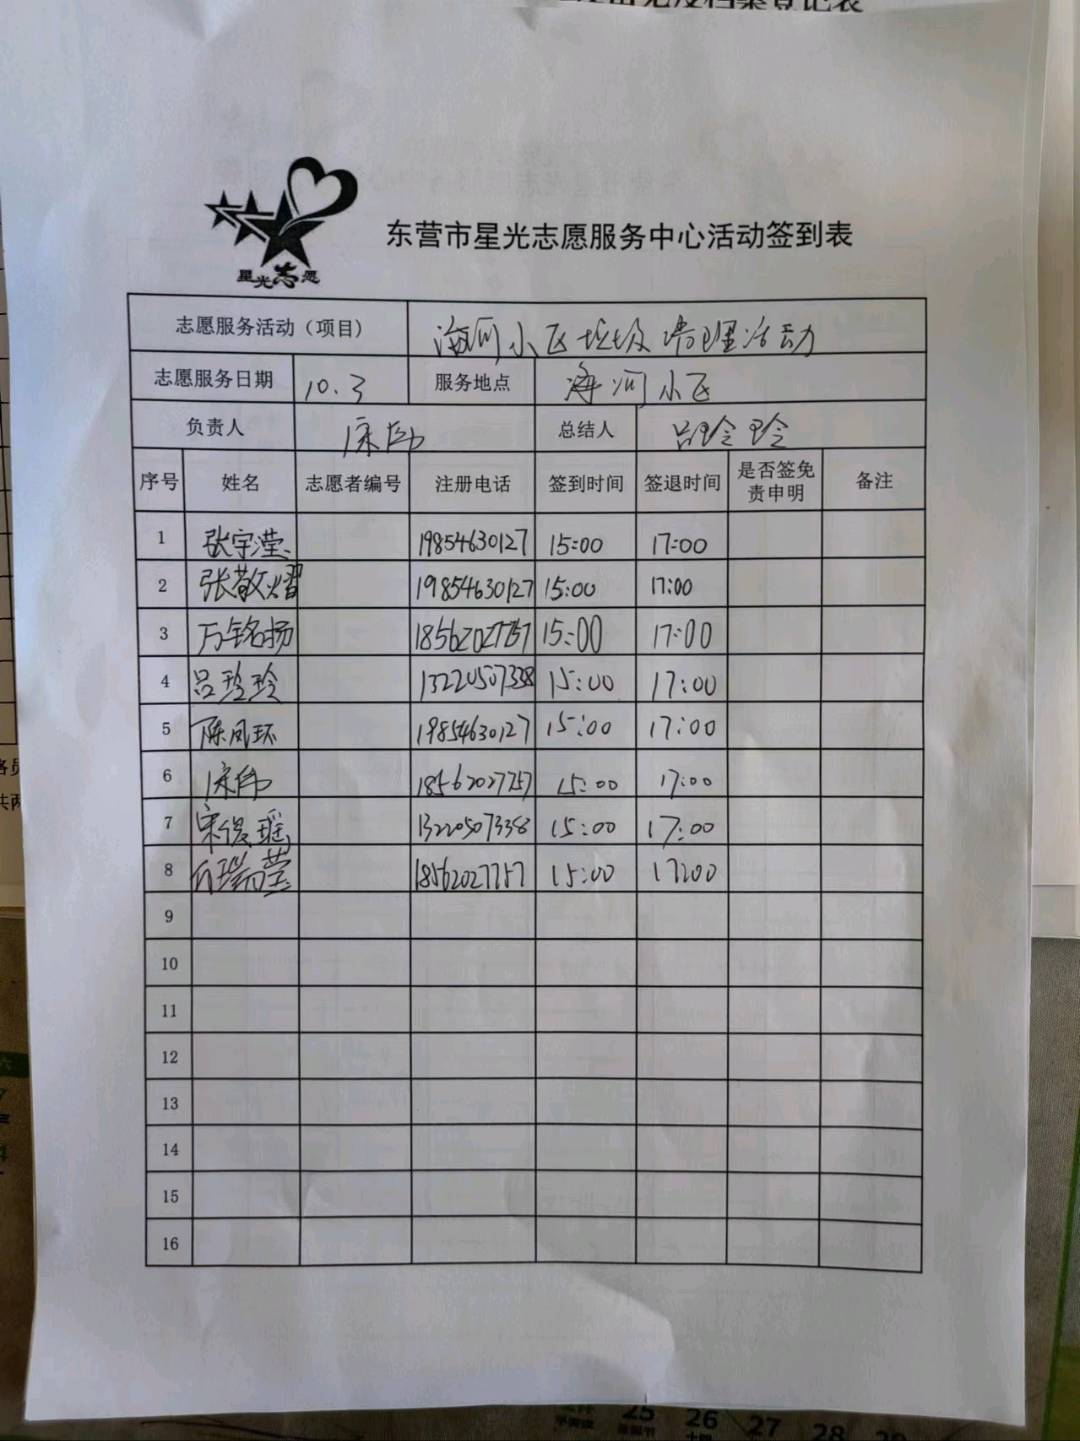 星光志愿
东营市星光志愿服务中心活动签到表
志愿服务活动（项目） 海河小区垃圾清理活动
志愿服务日期 10.3 服务地点 海河小区
负责人 宋伟 总结人 吕玲玲
序号 姓名 志愿者编号 注册电话 签到时间 签退时间 是否签免责申明 备注
1 张宇滢 19854630127 15:00 17:00
2 张敬熠 19854630127 15:00 17:00
3 万铭扬 18562027757 15:00 17:00
4 吕玲玲 13220507338 15:00 17:00
5 陈凤环 19854630127 15:00 17:00
6 宋伟 18562027757 15:00 17:00
7 宋俊瑶 13220507338 15:00 17:00
8 瑞莹 18562027757 15:00 17:00
9
10
11
12
13
14
15
16
25 26 27 28